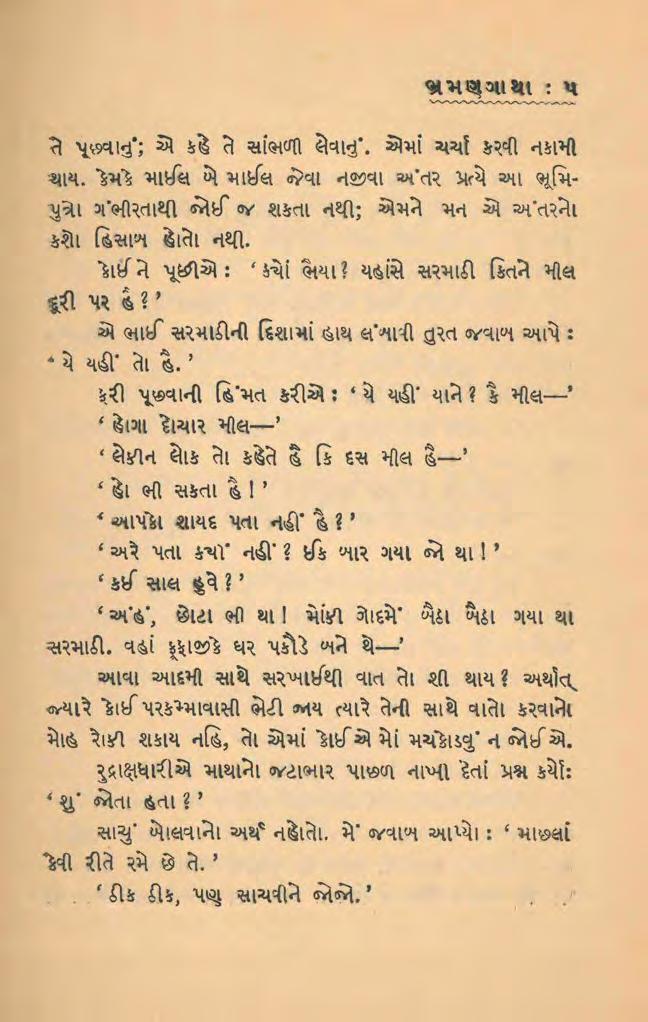 ભ્રમણગાથા : ૫
તે પૂછવાનું; એ કહે તે સાંભળી લેવાનું. એમાં ચર્ચા કરવી નકામી
થાય. કેમકે માઈલ બે માઈલ જેવા નજીવા અંતર પ્રત્યે આ ભૂમિ-
પુત્રો ગંભીરતાથી જોઈ જ શકતા નથી; એમને મન એ અંતરનો
કશો હિસાબ હોતો નથી.
કોઈને પૂછીએ : ‘ ક્યોં ભૈયા? યહાંસે સરમાઠી કિતને મીલ
દૂરી પર હૈ ? ’
એ ભાઈ સરમાઠીની દિશામાં હાથ લંબાવી તુરત જવાબ આપે :
‘ યે યહીં તો હૈ. ’
ફરી પૂછવાની હિંમત કરીએ : ‘ યે યહીં યાને ? કૈ મીલ—’
‘ હોગા દોચાર મીલ—’
‘ લેકીન લોક તો કહેતે હૈં કિ દસ મીલ હૈ—’
‘ હો ભી સકતા હૈ ! ’
‘ આપકો શાયદ પતા નહીં હૈ ? ’
‘ અરે પતા ક્યોં નહીં ? ઈક બાર ગયા જો થા ! ’
‘ કઈ સાલ હુવે ? ’
‘ અંહં, છોટા ભી થા ! મોંકી ગોદમેં બૈઠા બૈઠા ગયા થા
સરમાઠી. વહાં ફૂફાજીકે ઘર પકૌડે બને થે—’
આવા આદમી સાથે સરખાઈથી વાત તો શી થાય ? અર્થાત્
જ્યારે કોઈ પરકમ્માવાસી ભેટી જાય ત્યારે તેની સાથે વાતો કરવાનો
મોહ રોકી શકાય નહિ, તો એમાં કોઈએ મોં મચકોડવું ન જોઈએ.
રુદ્રાક્ષધારીએ માથાનો જટાભાર પાછળ નાખી દેતાં પ્રશ્ન કર્યો:
‘ શું જોતા હતા ? ’
સાચું બોલવાનો અર્થ નહોતો. મેં જવાબ આપ્યો : ‘ માછલાં
કેવી રીતે રમે છે તે. ’
‘ ઠીક ઠીક, પણ સાચવીને જોજો. ’